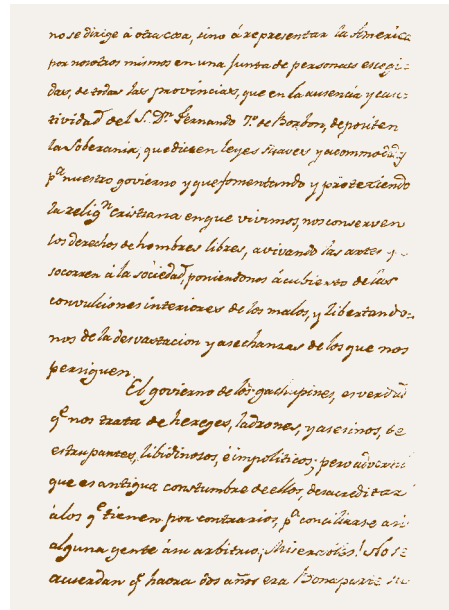 no se dirige á otra cosa, sino á representar la America
por nosotros mismos en una junta de personas escogi-
das, de todas las provincias, que en la ausencia y cau-
tividad del S. Dn. Fernando 7.º de Borbon, depositen
la Soberania, que dicten leyes suaves y acommodadas
pa nuestro govierno y que fomentando y protexiendo
la relign. cristiana en que vivimos, nos conserven
los derechos de hombres libres, avivando las artes y
socorren á la sociedad, poniendonos á cubierto de las
convulciones interiores de los malos, y libertando-
nos de la desvastacion y asechanzas de los que nos
persiguen.
El govierno de los gachupines, es verdad
qe nos trata de hereges, ladrones, y asesinos, de
estrupantes, libidinosos, é impoliticos; pero advertid
que es antigua constumbre de ellos, desacreditar
á los qe tienen por contrarios, pa conciliarse asi
alguna gente á su arbitrio; Miserables! No se
acuerdan qe haora dos años era Bonaparte su